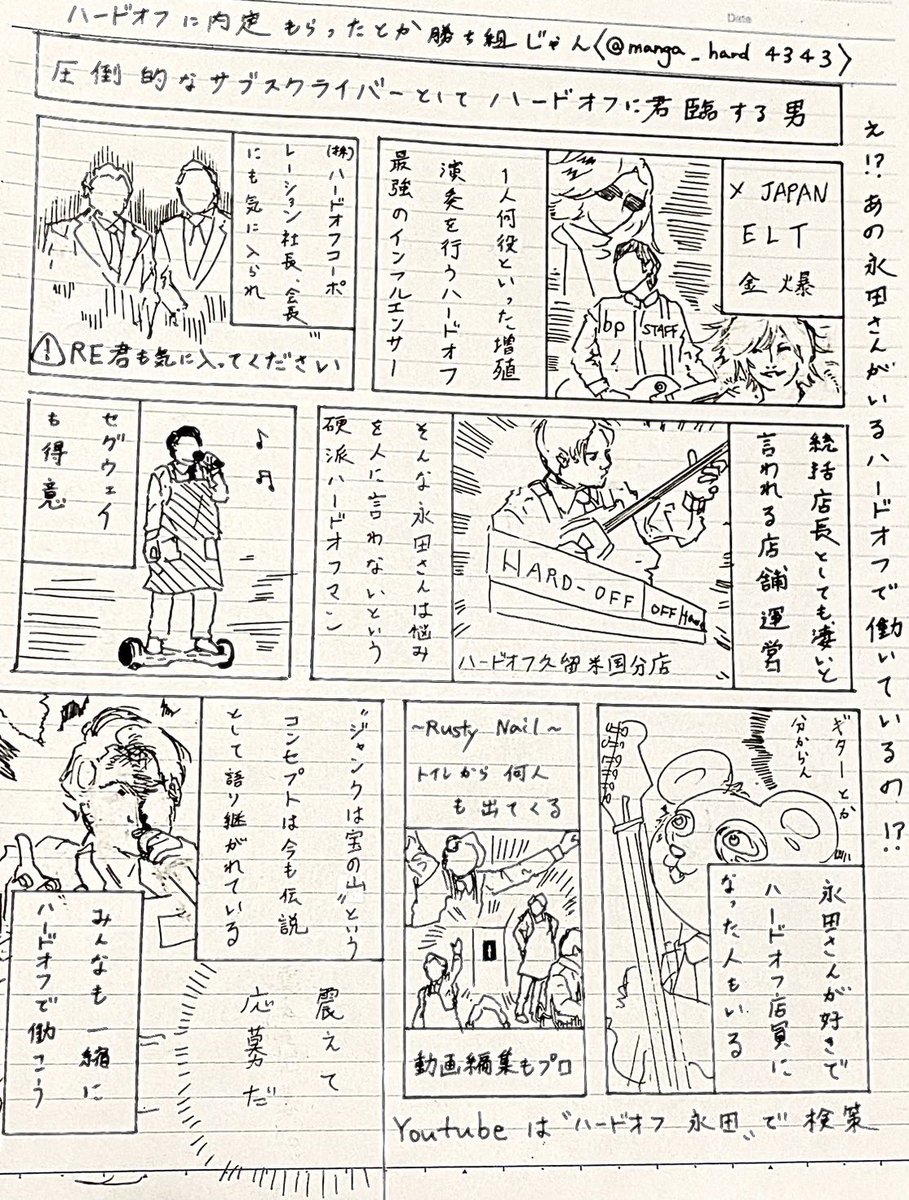 Date
ハードオフに内定もらったとか勝ち組じゃん〈@manga_hard4343〉
圧倒的なサブスクライバーとしてハードオフに君臨する男
え!?あの永田さんがいるハードオフで働いているの!?
X JAPAN
ELT
金爆
bp
STAFF
1人何役といった増殖
演奏を行うハードオフ
最強のインフルエンサー
(株)ハードオフコーポ
レーション社長、会長
にも気に入られ
RE君も気に入ってください
統括店長としても凄いと
言われる店舗運営
HARD-OFF
OFF HARD
ハードオフ久留米国分店
そんな永田さんは悩み
を人に言わないという
硬派ハードオフマン
セグウェイ
も得意
ギターとか
分からん
永田さんが好きで
ハードオフ店員に
なった人もいる
~Rusty Nail~
トイレから何人
も出てくる
動画編集もプロ
"ジャンクは宝の山"という
コンセプトは今も伝説
として語り継がれている
みんなも一緒に
ハードオフで働こう
震えて
応募だ
Youtubeは"ハードオフ 永田"で検策